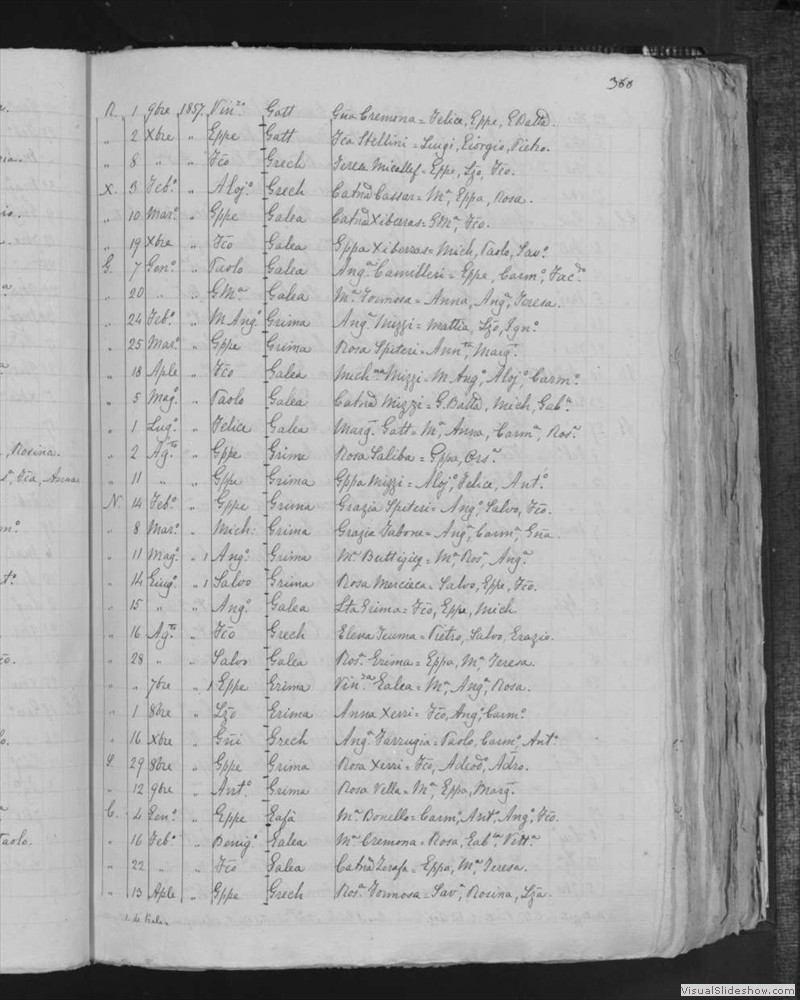 360
R. 1 9bre 1857 Vin.zo Gatt Gña Cremona = Felice, Eppe, E Batta.
" 2 Xbre " Eppe Gatt Fca Stellini = Luigi, Giorgio, Pietro.
" 8 " " Fco Grech Teresa Micallef = Eppe, Lzo, Fco.
X. 3 Feb.o " Aloj.o Grech Catna Cassar = M.a, Eppa, Rosa.
" 10 Mar.o " Gppe Galea Catna Xiberras = GM.a, Fco.
" 19 Xbre " Fco Galea Eppa Xiberras = Mich, Paolo, Sav.o
G. 7 Gen.o " Paolo Galea Ang.a Camilleri = Eppe, Carm.o,
" 20 " " GM.a Galea M.a Formosa = Anna, Ang.a, Teresa.
" 24 Feb.o " M Ang.o Grima Ang.a Mizzi = Mattia, Lzo, Ign.o
" 25 Mar.o " Gppe Grima Rosa Spiteri = Ann.ta, Marg.a
" 18 Aple " Fco Galea Mich.na Mizzi = M. Ang.o, Aloj.o, Carm.o
" 5 Mag.o " Paolo Galea Catna Mizzi = G. Batta, Mich, Gab.a
" 1 Lug.o " Felice Galea Marg.a Gatt = M.a, Anna, Carm.a, Ros.a
" 2 Ag.to " Gppe Grime Rosa Saliba = Gppa, Ors.a
" 11 " " Gppe Grima Gppa Mizzi = Aloj.o, Felice, Ant.o
N. 14 Feb.o " Gppe Grima Grazia Spiteri = Ang.o, Salvo, Fco.
" 8 Mar.o " Mich: Grima Grazia Tabone = Ang.a, Carm.a, Gña.
" 11 Mag.o " 1 Ang.o Grima M.a Buttigieg = M.a, Ros.a, Ang.a
" 14 Giug.o " 1 Salvo Grima Rosa Mercieca = Salvo, Eppe, Fco.
" 15 " " Ang.o Galea Lta Grima = Fco, Eppe, Mich
" 16 Ag.to " Fco Grech Elena Teuma = Pietro, Salvo, Erazio.
" 28 " " Salvo Galea Ros.a Erima = Eppa, M.a, Teresa.
" " 7bre " 1 Eppe Erima Vin.za Ealea = M.a, Ang.a, Rosa.
" 1 8bre " Lzo Erima Anna Xerri = Fco, Ang.o, Carm.o
" 16 Xbre " Gñi Grech Ang.a Farrugia = Paolo, Carm.o, Ant.o
S. 29 8bre " Gppe Grima Rosa Xerri = Fco, Adeod.o, Adro.
" 12 9bre " Ant.o Grima Rosa Vella = M.a, Eppa, Marg.a
C. 4 Een.o " Eppe Eafà M.a Bonello = Carm.o, Ant.o, Ang.o, Fco.
" 16 Feb.o " Benig.o Ealea M.a Cremona = Rosa, Eab.la, Vitt.a
" 22 " " Fco Ealea Catna Zerafa = Eppa, M.a, Teresa.
" 13 Aple " Gppe Grech Ros.a Formosa = Sav.a, Rosina, Lza.
, Rosina.
s.a, Fca, Anna
Paolo.
VisualSlideshow.com